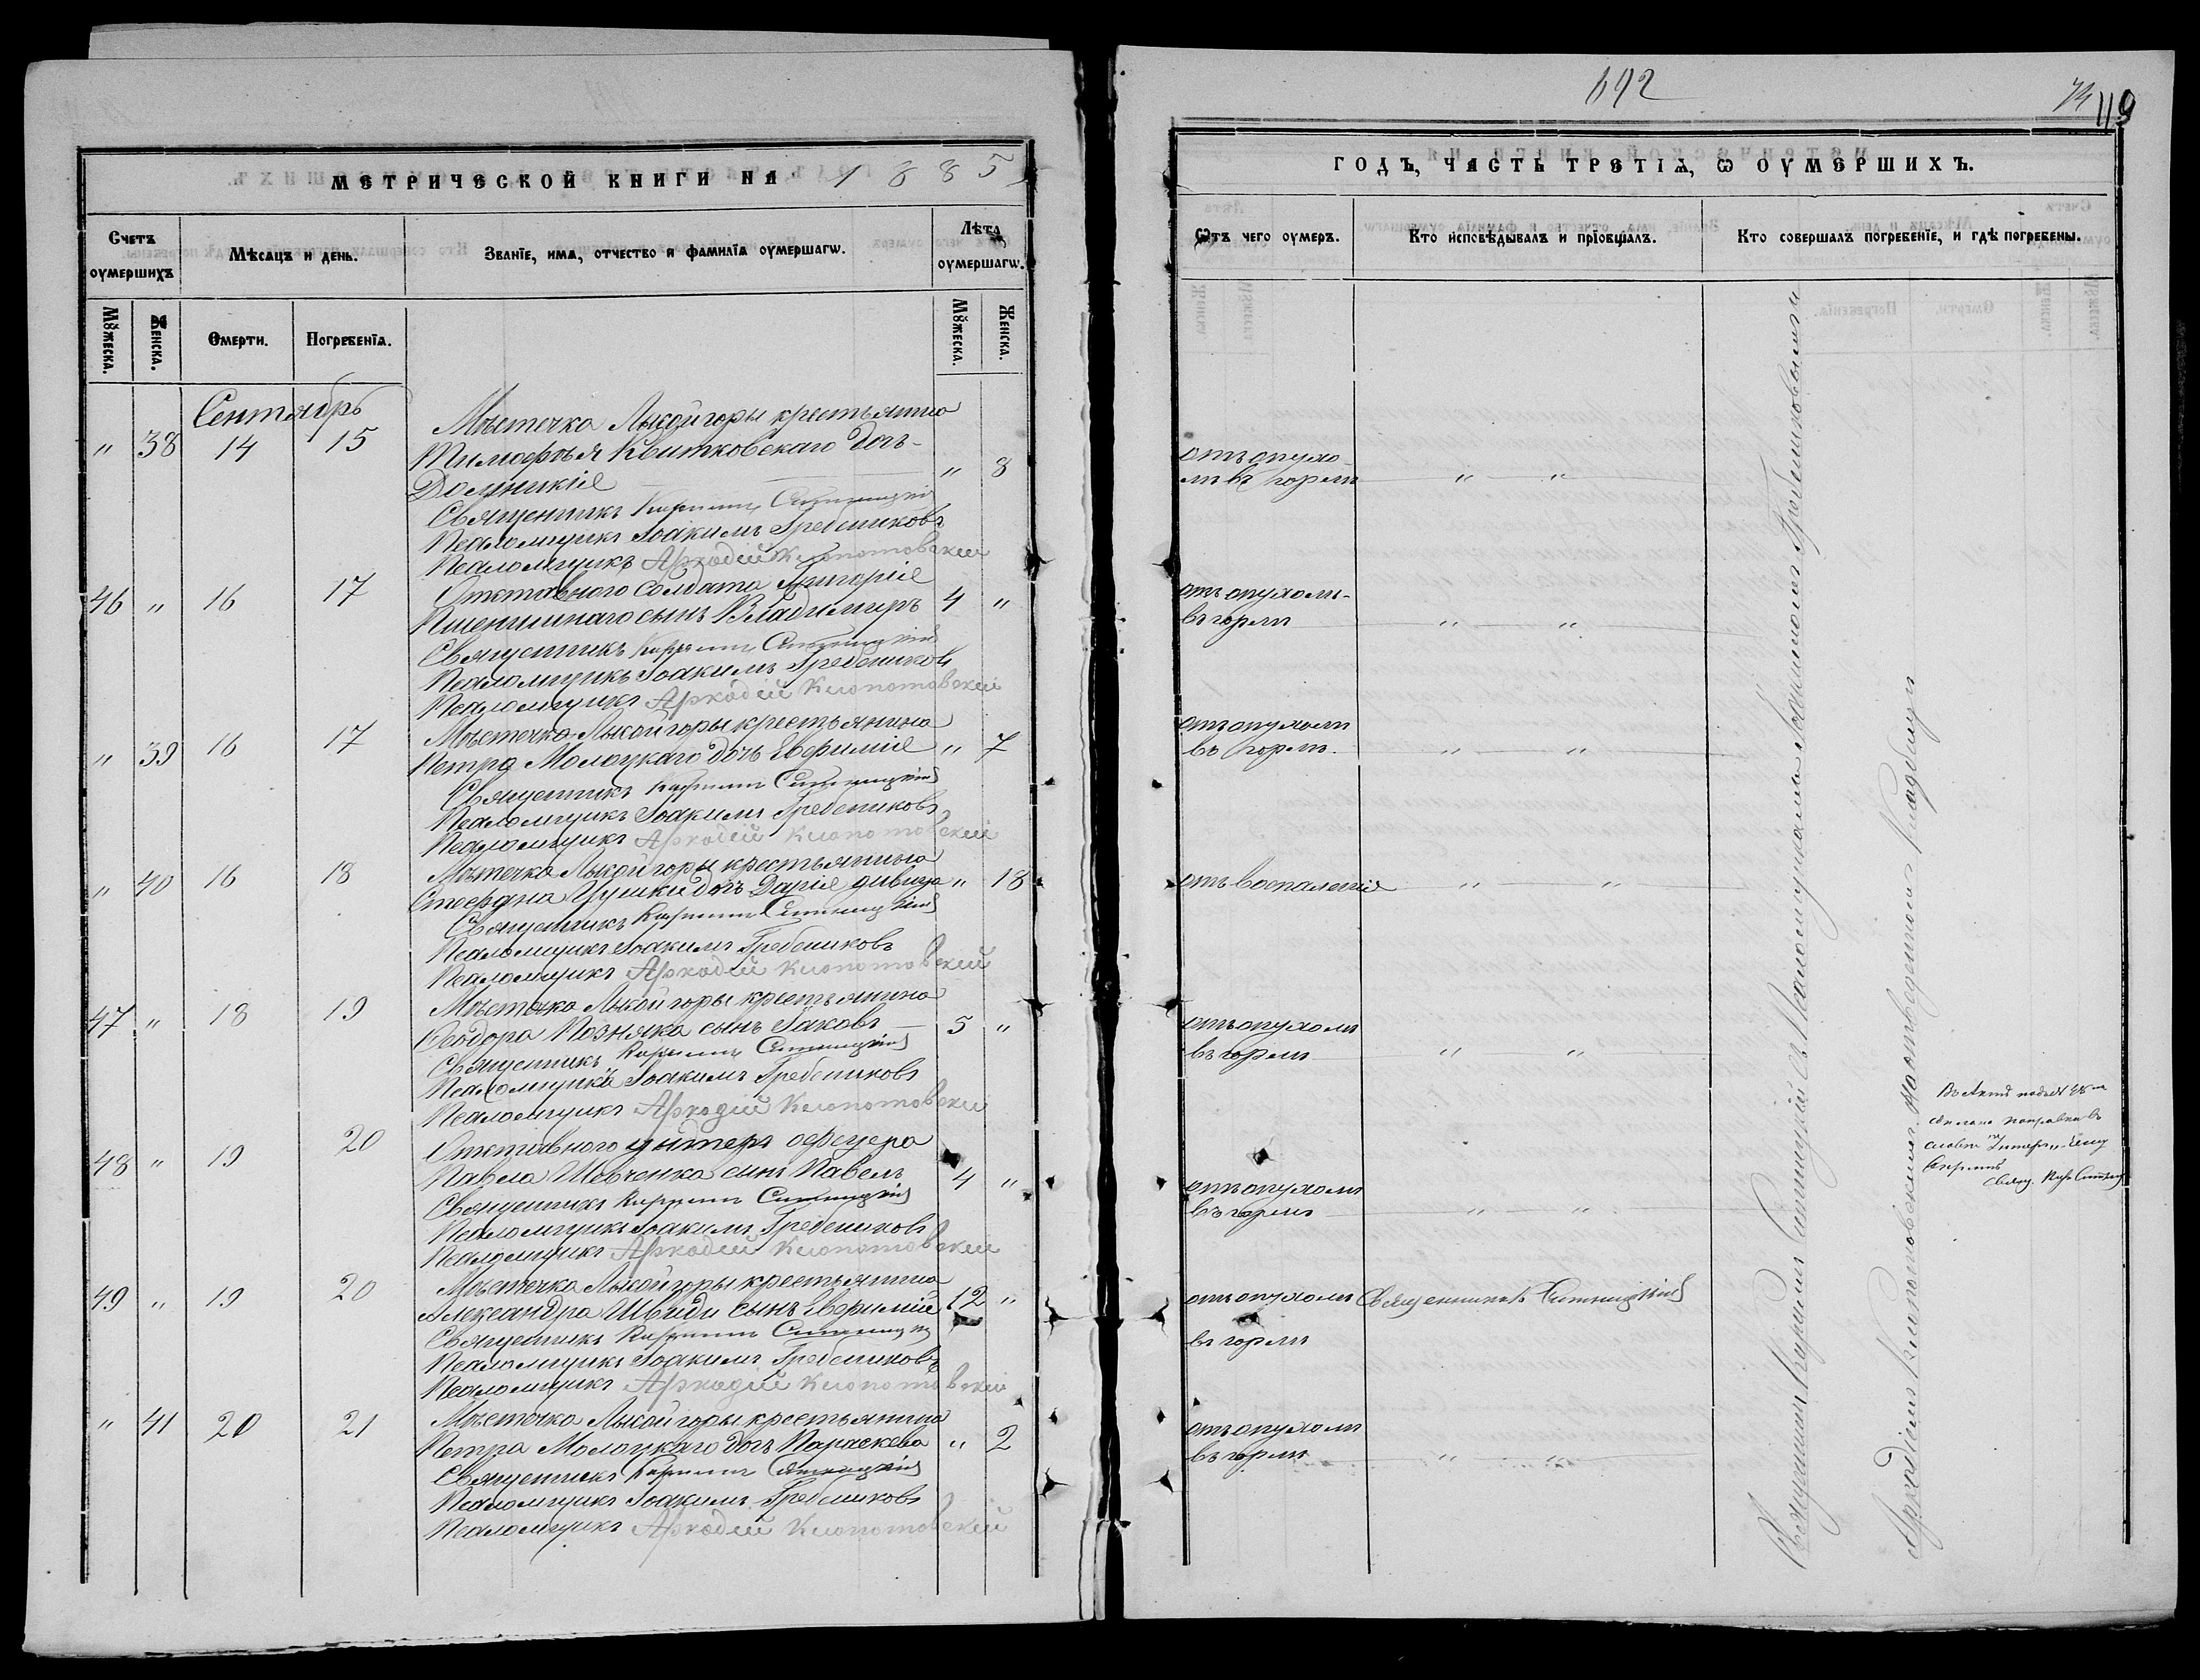 МЕТРИЧЕСКОЙ КНИГИ НА 1885
Счетъ оумершихъ
Мѣсѧцъ и день.
Званїе, имѧ, отчество и фамилїѧ оумершагѡ.
Лѣта оумершагѡ.
Мꙋжеска.
Женска.
Смерти.
Погребенїѧ.
Мꙋжеска.
Женска.
Сентябрь
" 38 14 15 Мѣстечка Лысой горы крестьянина
Тимофѣя Квитковскаго дочь
Домникія " 8
Священникъ Кирилл Ситницкій
Псаломщикъ Іоакимъ Гребениковъ
Псаломщикъ Аркадій Клопотовскій
46 " 16 17 Отставного солдата Григорія
Пшеничнаго сынъ Владимиръ 4 "
Священникъ Кирилл Ситницкій
Псаломщикъ Іоакимъ Гребениковъ
Псаломщикъ Аркадій Клопотовскій
" 39 16 17 Мѣстечка Лысой горы крестьянина
Петра Молоцкаго дочь Евфимія " 7
Священникъ Кирилл Ситницкій
Псаломщикъ Іоакимъ Гребениковъ
Псаломщикъ Аркадій Клопотовскій
" 40 16 18 Мѣстечка Лысой горы крестьянина
Стефана Цушки дочь Дарія дивица " 18
Священникъ Кирилл Ситницкій
Псаломщикъ Іоакимъ Гребениковъ
Псаломщикъ Аркадій Клопотовскій
47 " 18 19 Мѣстечка Лысой горы крестьянина
Ѳеодора Позняка сынъ Іаковъ 5 "
Священникъ Кирилл Ситницкій
Псаломщикъ Іоакимъ Гребениковъ
Псаломщикъ Аркадій Клопотовскій
48 " 19 20 Отставного унтеръ офецера
Павла Шевченка сынъ Павелъ 4 "
Священникъ Кирилл Ситницкій
Псаломщикъ Іоакимъ Гребениковъ
Псаломщикъ Аркадій Клопотовскій
49 " 19 20 Мѣстечка Лысой горы крестьянина
Александра Швиди сынъ Евфимій 12 "
Священникъ Кирилл Ситницкій
Псаломщикъ Іоакимъ Гребениковъ
Псаломщикъ Аркадій Клопотовскій
" 41 20 21 Мѣстечка Лысой горы крестьянина
Петра Молоцкаго дочь Параскева " 2
Священникъ Кирилл Ситницкій
Псаломщикъ Іоакимъ Гребениковъ
Псаломщикъ Аркадій Клопотовскій
692
74 119
ГОДЪ, ЧАСТЬ ТРЕТІѦ, Ѡ ОУМЕРШИХЪ.
Ѿтъ чего оумеръ.
Кто исповѣдывалъ и прїобщалъ.
Кто совершалъ погребенїе, и гдѣ погребены.
отъ опухо-
ли въ горли " "
отъ опухоли
въ горли " "
отъ опухоли
въ горли " "
отъ воспаленія " "
отъ опухоли
въ горли " "
отъ опухоли
въ горли " "
отъ опухоли Священникъ Ситницкій
въ горли
отъ опухоли
въ горли " "
Священникъ Кириллъ Ситницкій съ Псаломщиками Іоакимомъ Гребениковымъ и
Аркадіемъ Клопотовскимъ на отведенномъ кладбищи
Въ актѣ подъ № 48
сделана поправка въ
словѣ Унтеръ
Свящ. Кир Ситниц